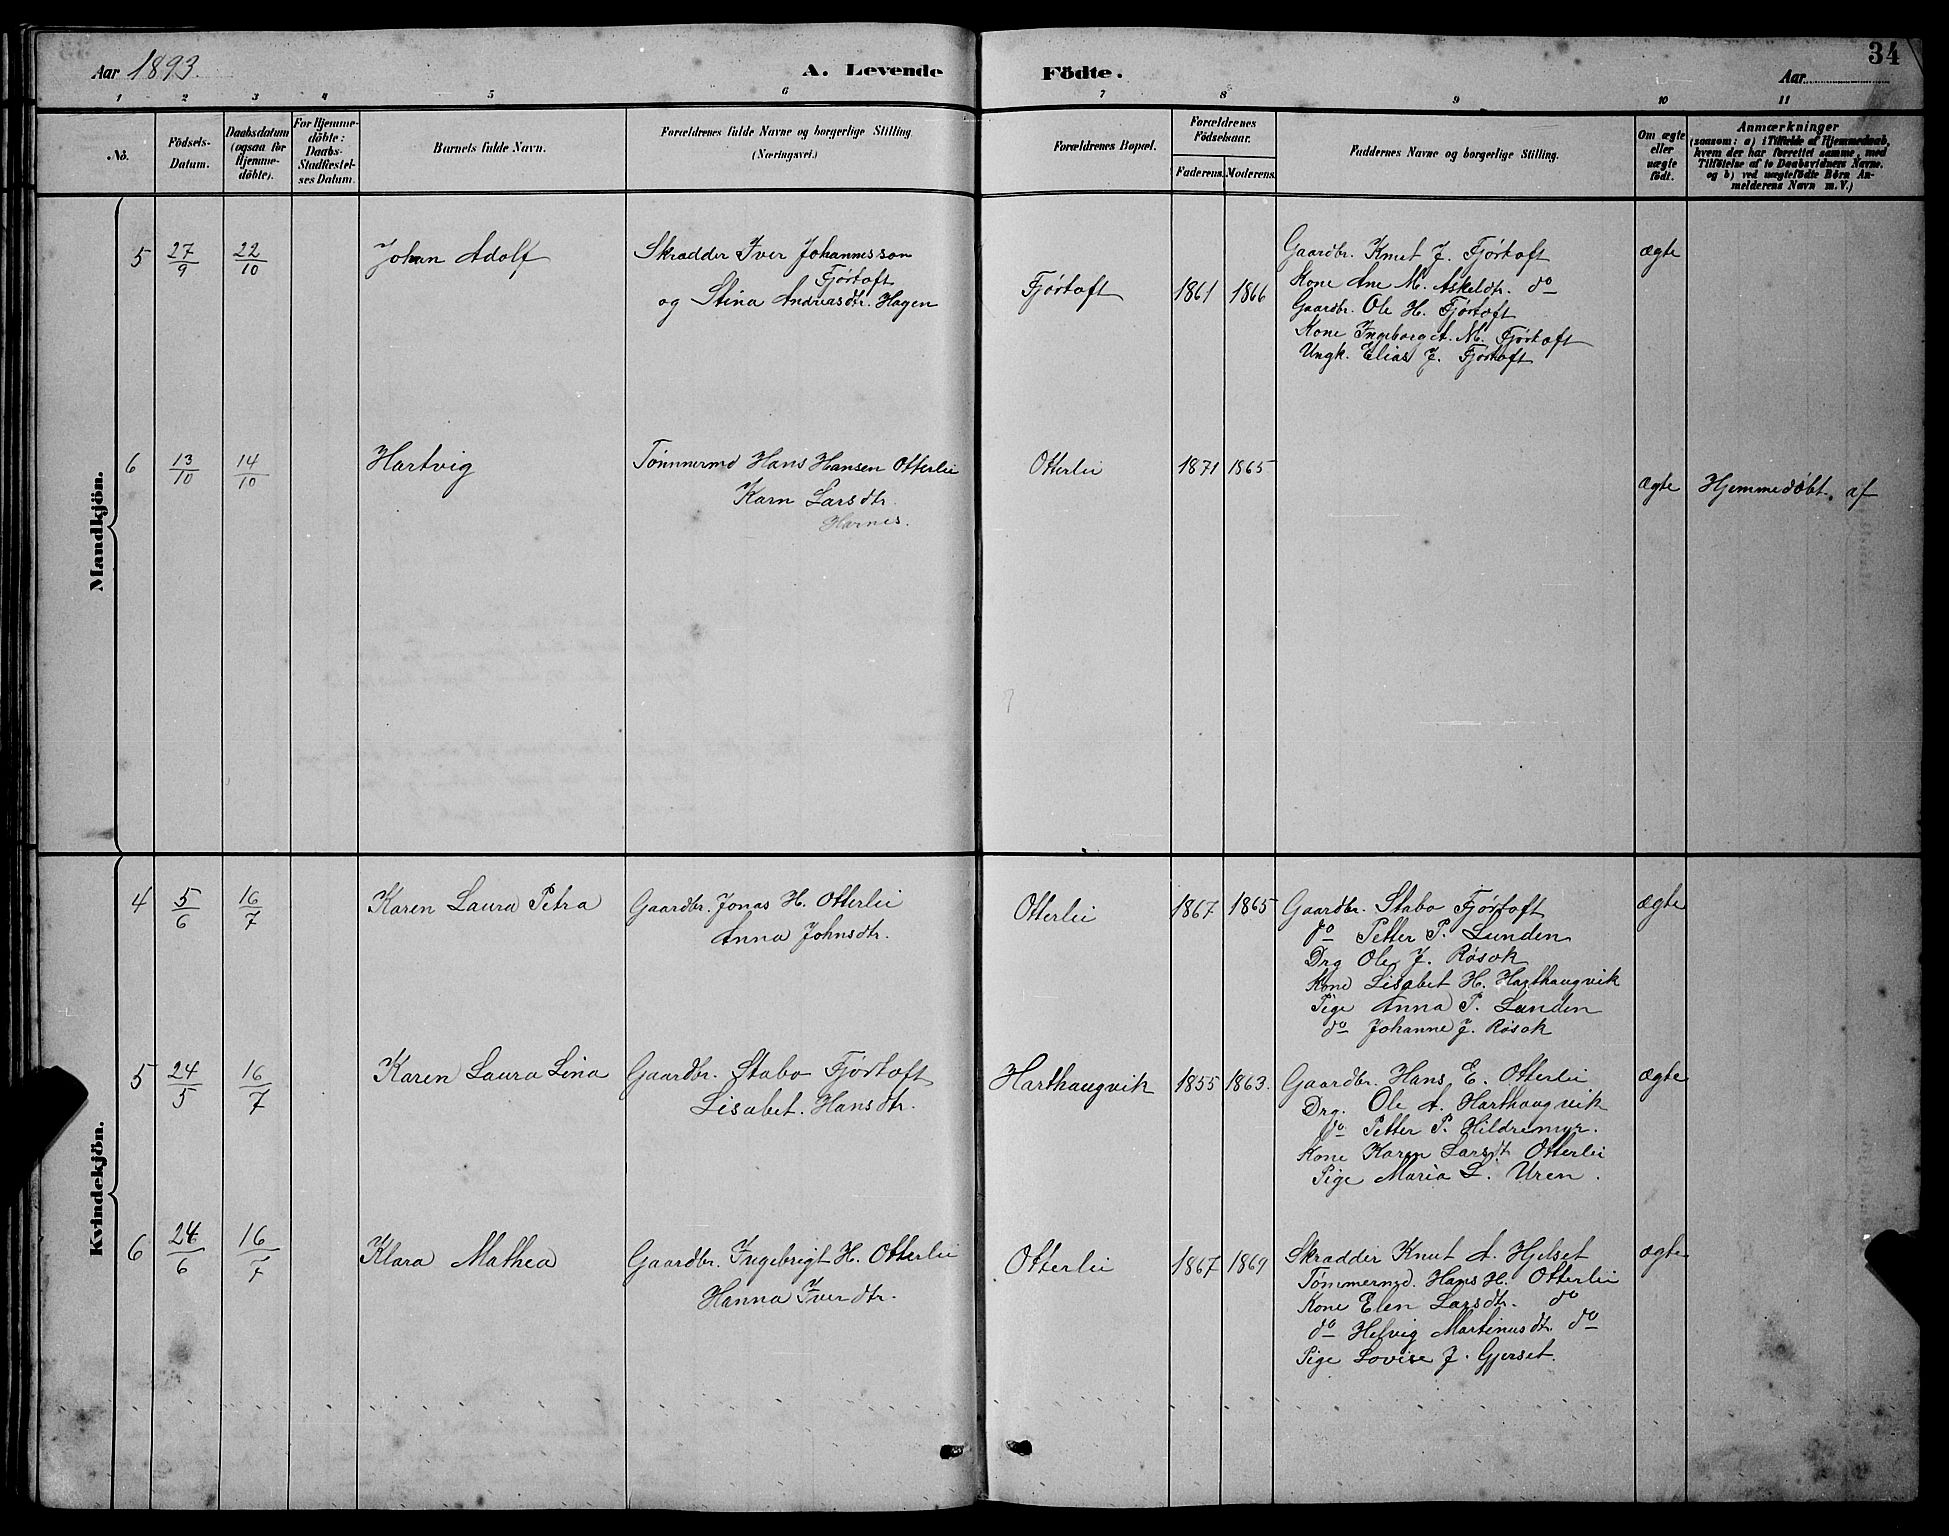 Aar 1893.
A. Levende Födte.
34
Aar
1 2 3 4 5 6 7 8 9 10 11
No.
Födsels-Datum.
Daabsdatum (ogsaa for Hjemme-döbte).
For Hjemme-döbte: Daabs-Stadfæstel-ses Datum.
Barnets fulde Navn.
Forældrenes fulde Navne og borgerlige Stilling. (Næringsvei.)
Forældrenes Bopæl.
Forældrenes Födselsaar.
Faderens. Moderens.
Faddernes Navne og borgerlige Stilling.
Om ægte eller uægte födt.
Anmærkninger
(saasom: a) i Tilfælde af Hjemmedaab, hvem der har forrettet samme, med Tilföielse af to Daabsvidners Navne, og b) ved uægtefödte Börn An-melderens Navn m. V.)
Mandkjön.
5 27/9 22/10 Johan Adolf
Skrædder Iver Johannesson
Fjørtoft
og Stina Andreasdtr. Hagen
Fjørtoft 1861 1866
Gaardbr. Knut J. Fjørtoft
Kone Ane M. Askeldtr. do
Gaardbr. Ole H. Fjørtoft
Kone Ingeborg A. M. Fjørtoft
Ungk. Elias J. Fjørtoft
ægte
6 13/10 14/10 Hartvig
Tömmermd Hans Hansen Otterlei
Karn Larsdtr.
Harnes.
Otterlei 1871 1865
ægte Hjemmedöbt. af
Kvindekjön.
4 5/6 16/7 Karen Laura Petra
Gaardbr. Jonas H. Otterlei
Anna Johnsdtr.
Otterlei 1867 1865
Gaardbr. Stabo Fjørtoft
do Petter P. Lunden
Drg Ole J. Røsok
Kone Lisabet H. Harthaugvik
Pige Anna P. Lunden
do Johanne J. Røsok
ægte
5 24/5 16/7 Karen Laura Lina
Gaardbr. Stabo Fjørtoft
Lisabet. Hansdtr.
Harthaugvik 1855 1863.
Gaardbr. Hans E. Otterlei
Drg. Ole A. Harthaugvik
do Petter P. Hildremyr.
Kone Karen Larsdt Otterlei
Pige Maria L. Uren.
ægte
6 24/6 16/7 Klara Mathea
Gaardbr. Ingebrigt H. Otterlei
Hanna Iverdtr.
Otterlei 1867 1869
Skrædder Knut A. Hjelset
Tømmermd. Hans H. Otterlei
Kone Elen Larsdtr. do
do Helvig Martinusdtr do
Pige Lovise J. Gjerset.
ægte